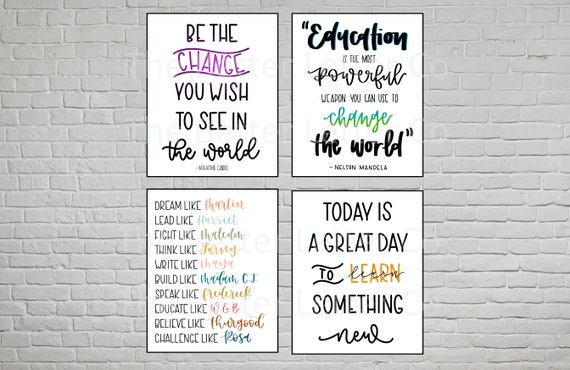 BE THE
CHANGE
YOU WISH
TO SEE IN
the world
"Education
IS THE MOST
powerful
WEAPON YOU CAN USE TO
change
the world"
~ NELSON MANDELA
DREAM LIKE Martin
LEAD LIKE Harriet
FIGHT LIKE Malcolm
THINK LIKE Garvey
WRITE LIKE Maya
BUILD LIKE Madam C.J.
SPEAK LIKE Frederick
EDUCATE LIKE W.E.B
BELIEVE LIKE Thurgood
CHALLENGE LIKE Rosa
TODAY IS
A GREAT DAY
TO LEARN
SOMETHING
new